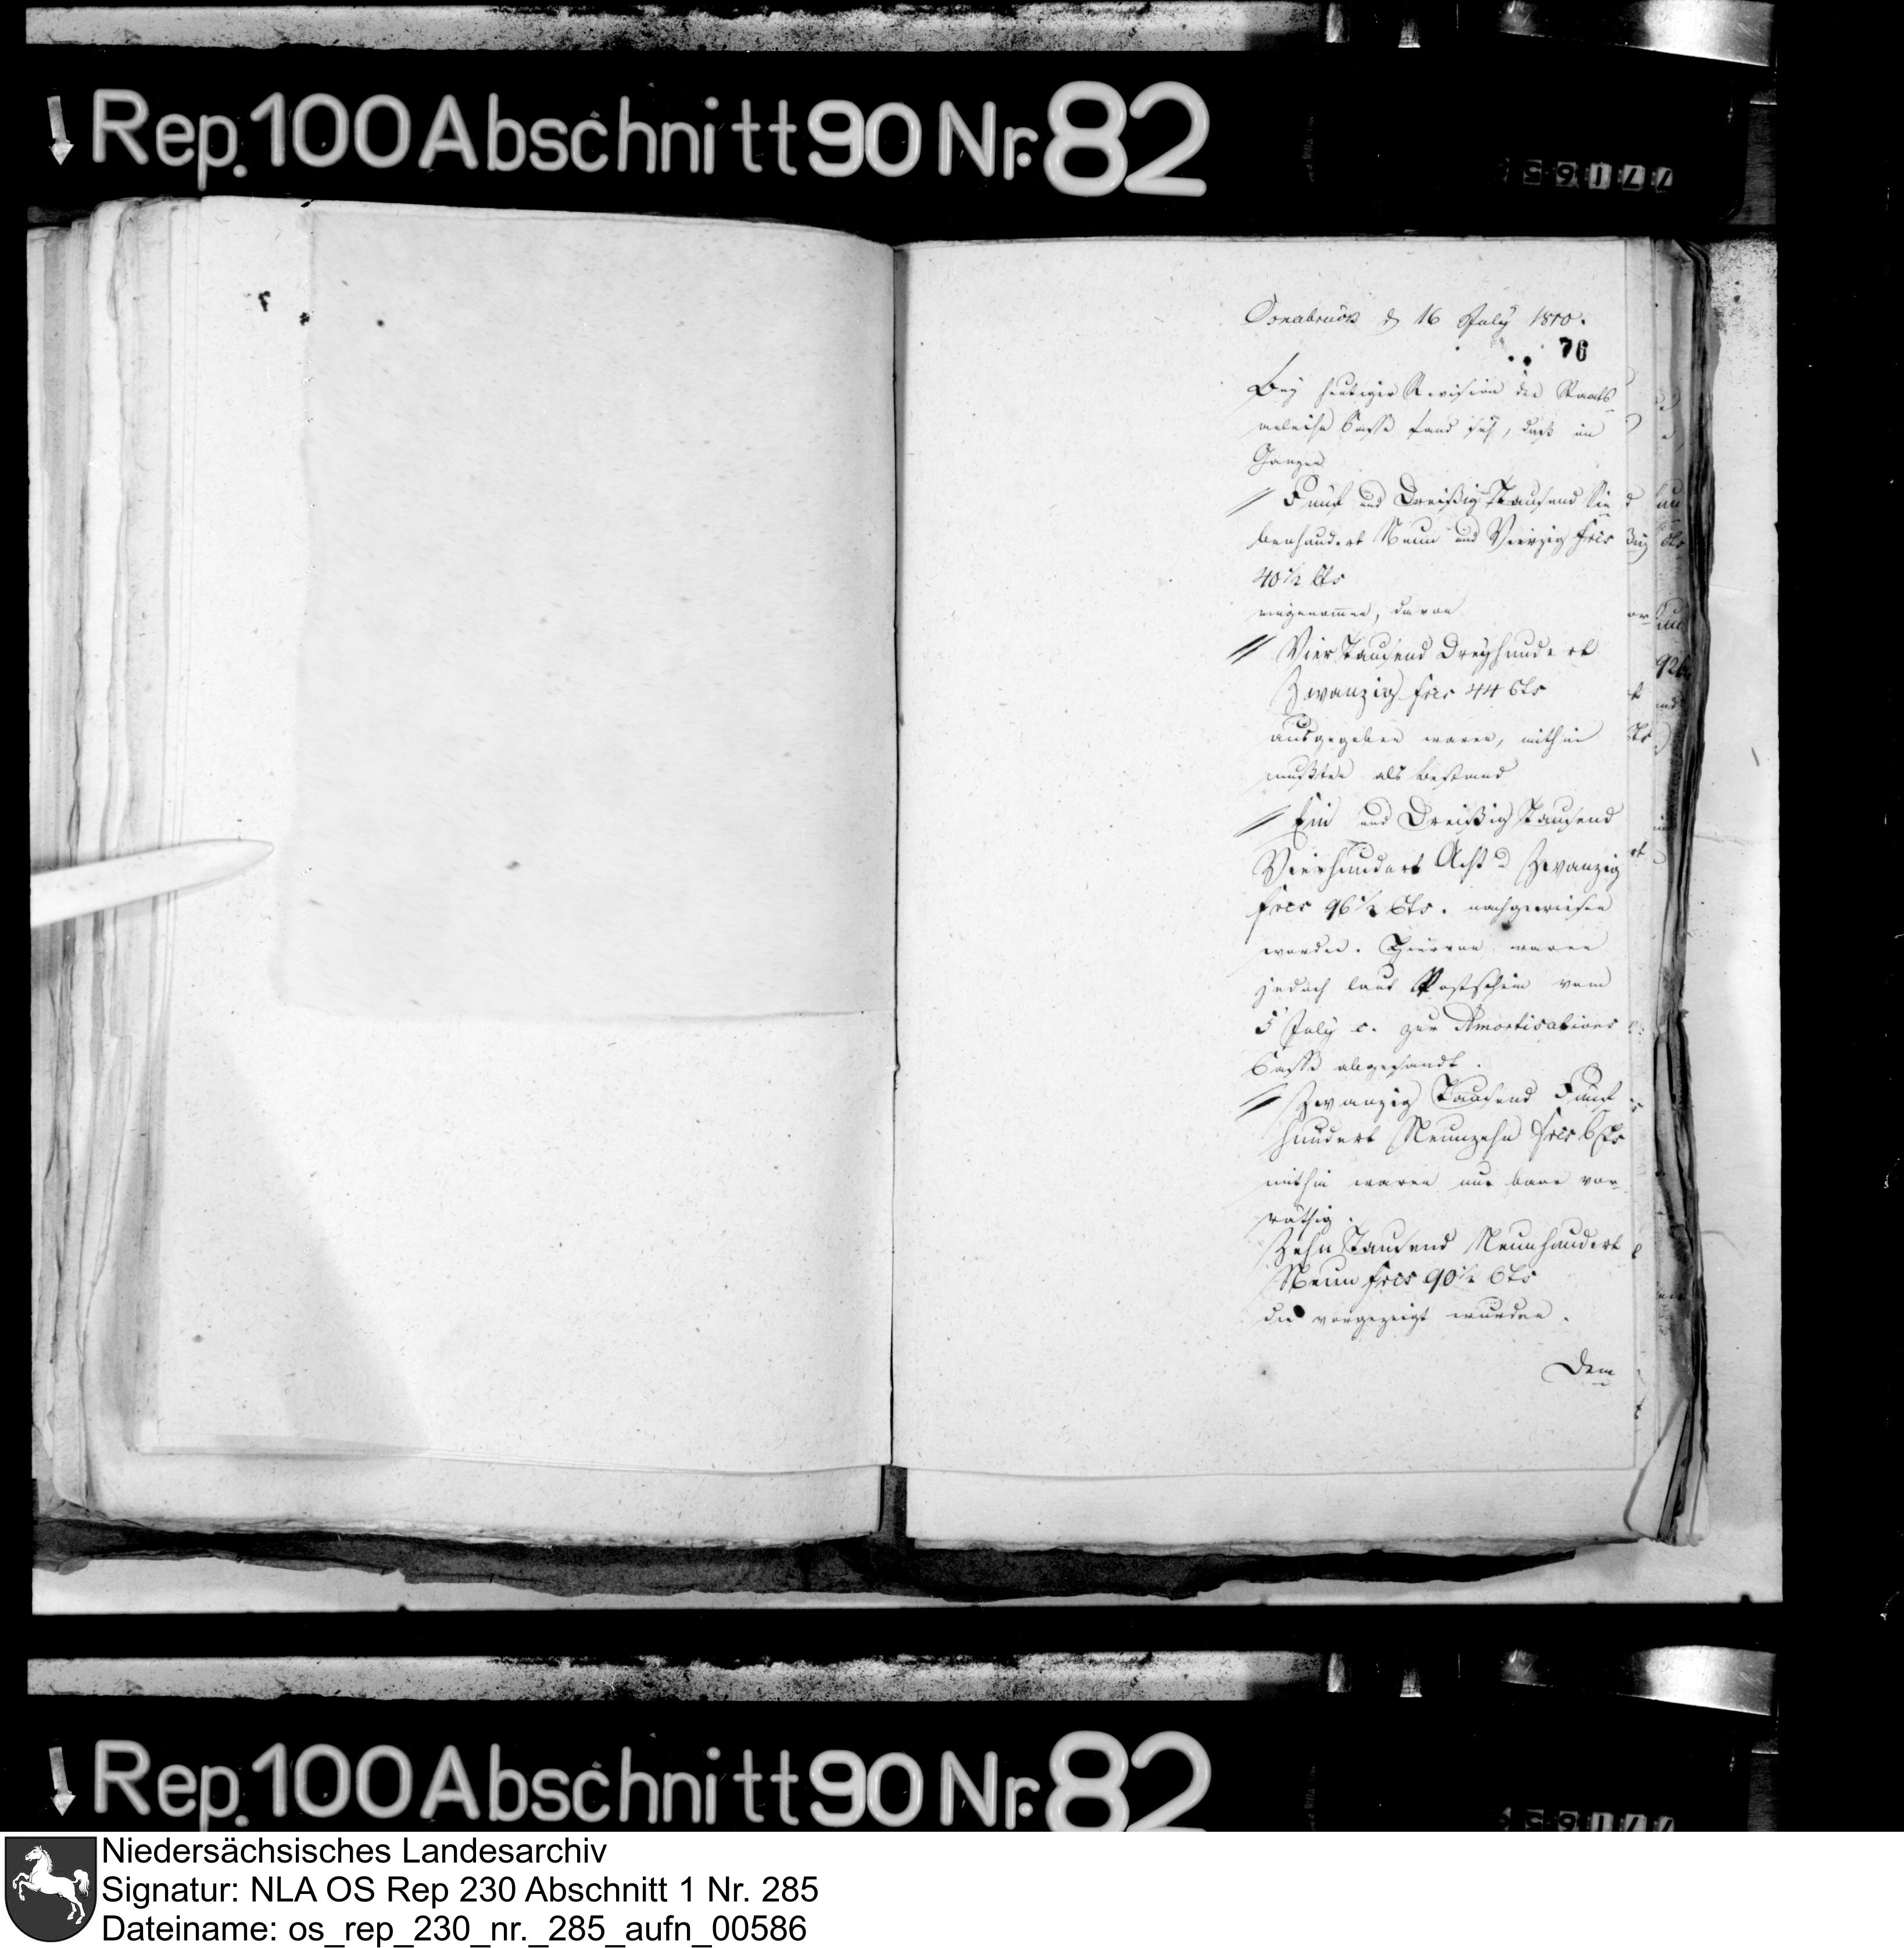 Rep. 100 Abschnitt 90 Nr. 82
Osnabrück d 16 July 1810.
76
Bey heutiger Revision der Staats
anleihe Casse fand sich, daß im
Ganzen
Fünf und Dreißig Tausend Sie
benhundert Neun und Vierzig frcs
40 1/2 Cts
eingenommen, davon
Vier Tausend Dreyhundert
Zwanzig frcs 44 Cts
ausgegeben waren, mithin
mußten als Bestand
Ein und Dreißig Tausend
Vierhundert Acht u Zwanzig
frcs 96 1/2 Cts. nachgewiesen
werden. Hiervon waren
jedoch laut Postschein vom
5 July c. zur Amortisations
Casse abgesandt.
Zwanzig Tausend Fünf
hundert Neunzehn frcs 6 Cts
mithin waren nur baar vor-
räthig.
Zehn Tausend Neunhundert
Neun frcs 90 1/2 Cts
die vorgezeigt wurden.
Dem
Rep. 100 Abschnitt 90 Nr. 82
Niedersächsisches Landesarchiv
Signatur: NLA OS Rep 230 Abschnitt 1 Nr. 285
Dateiname: os_rep_230_nr._285_aufn_00586